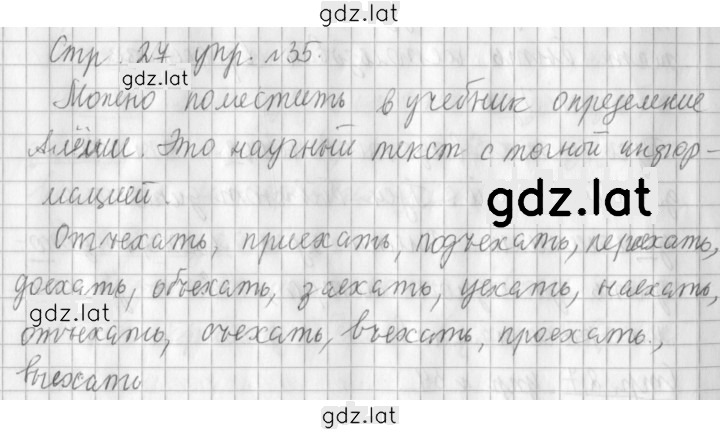 gdz.lat
Стр. 27 упр. №35.
gdz.lat
Можно поместить в учебник определение
Алёши. Это научный текст с точной инфор-
мацией.
gdz.lat
Отъехать, приехать, подъехать, переехать,
доехать, объехать, заехать, уехать, наехать,
gdz.lat
отъехать, съехать, въехать, проехать.,
выехать
gdz.lat